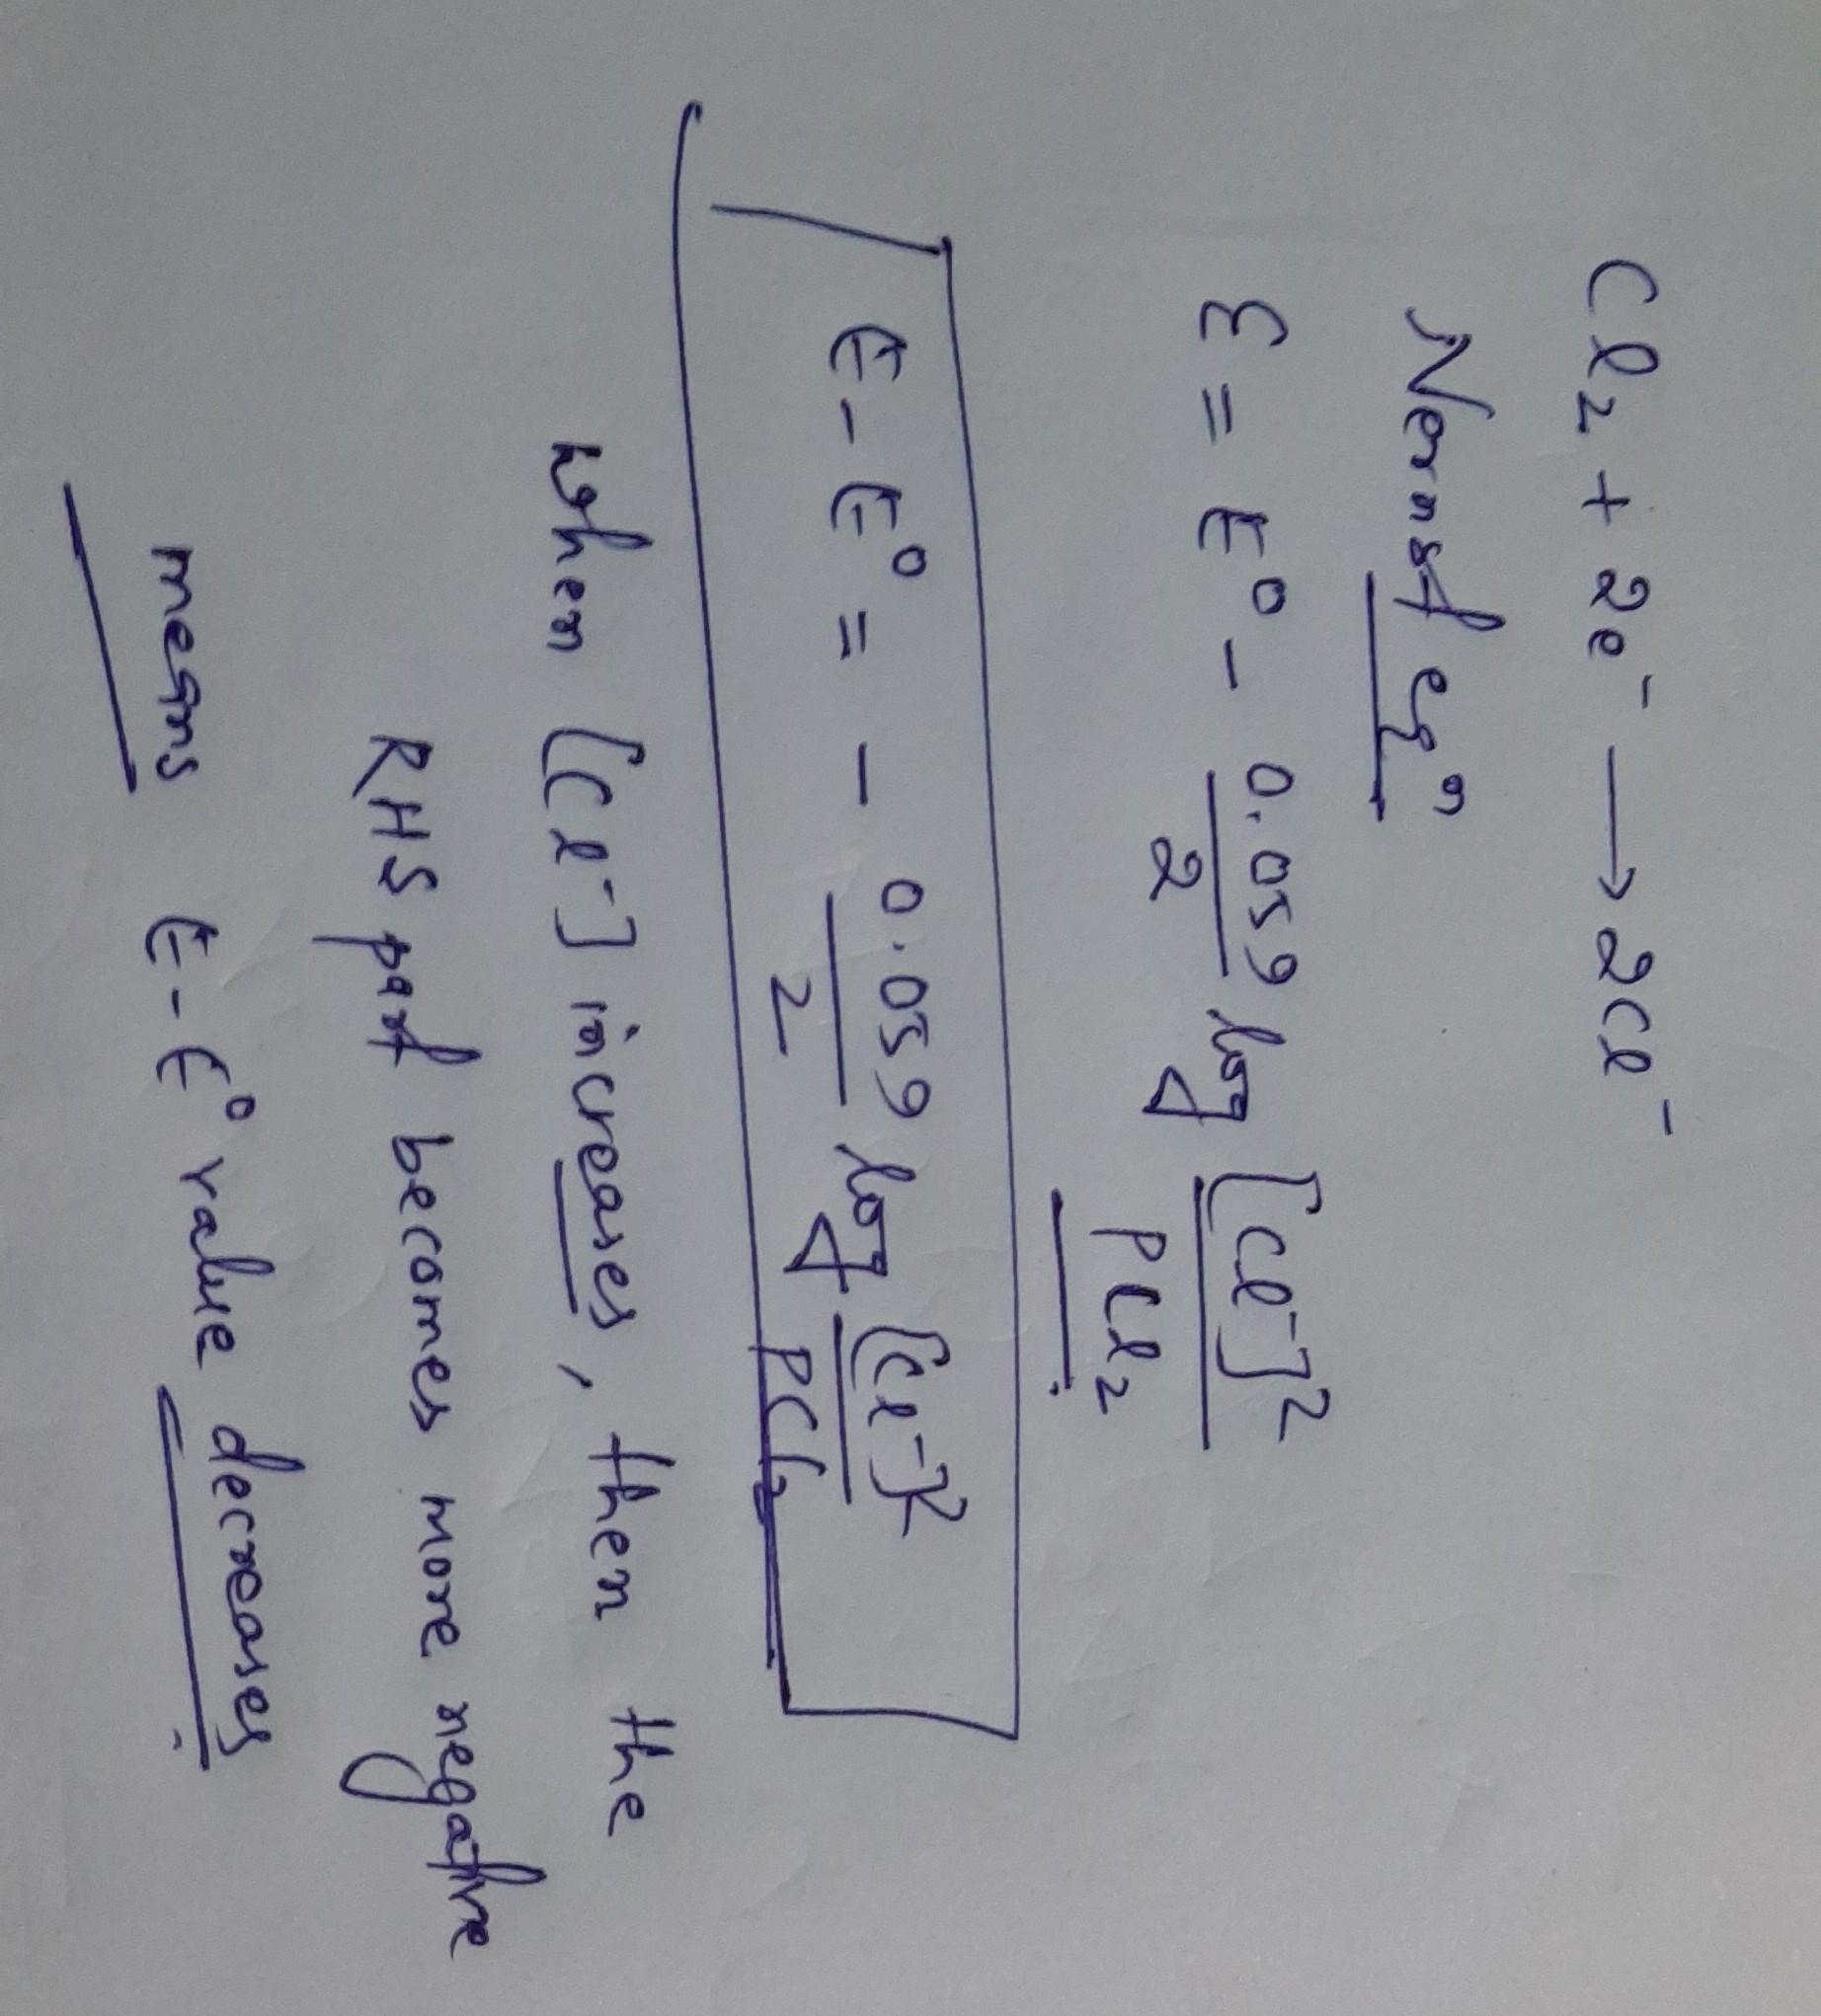 Cl₂ + 2e⁻ ⟶ 2Cl⁻
Nernst eqⁿ
E = E⁰ - 0.059/2 log [Cl⁻]²/PCl₂
E - E⁰ = - 0.059/2 log [Cl⁻]²/PCl₂
when [Cl⁻] increases, then the
RHS part becomes more negative
means E - E⁰ value decreases